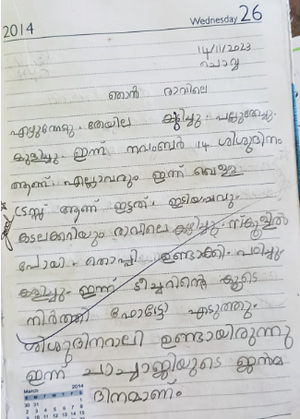 2014
Wednesday 26
14/11/2023
ചൊവ്വ
ഞാൻ രാവിലെ
എഴുന്നേറ്റു. തേയില കുടിച്ചു. പല്ലുതേച്ചു.
കുളിച്ചു. ഇന്ന് നവംബർ 14 ശിശുദിനം
ആണ് എല്ലാവരും ഇന്ന് വെള്ള
ഡ്രസ്സ് ആണ് ഇട്ടത്. ഇടിയപ്പവും
കടലക്കറിയും രാവിലെ കഴിച്ചു സ്കൂളിൽ
പോയി. തൊപ്പി ഉണ്ടാക്കി. പഠിച്ചു.
കളിച്ചു. ഇന്ന് ടീച്ചറിന്റെ കൂടെ
നിർത്തി ഫോട്ടോ എടുത്തു.
ശിശുദിനറാലി ഉണ്ടായിരുന്നു
ഇന്ന് ചാച്ചാജിയുടെ ജന്മ
ദിനമാണ്.
March 2014